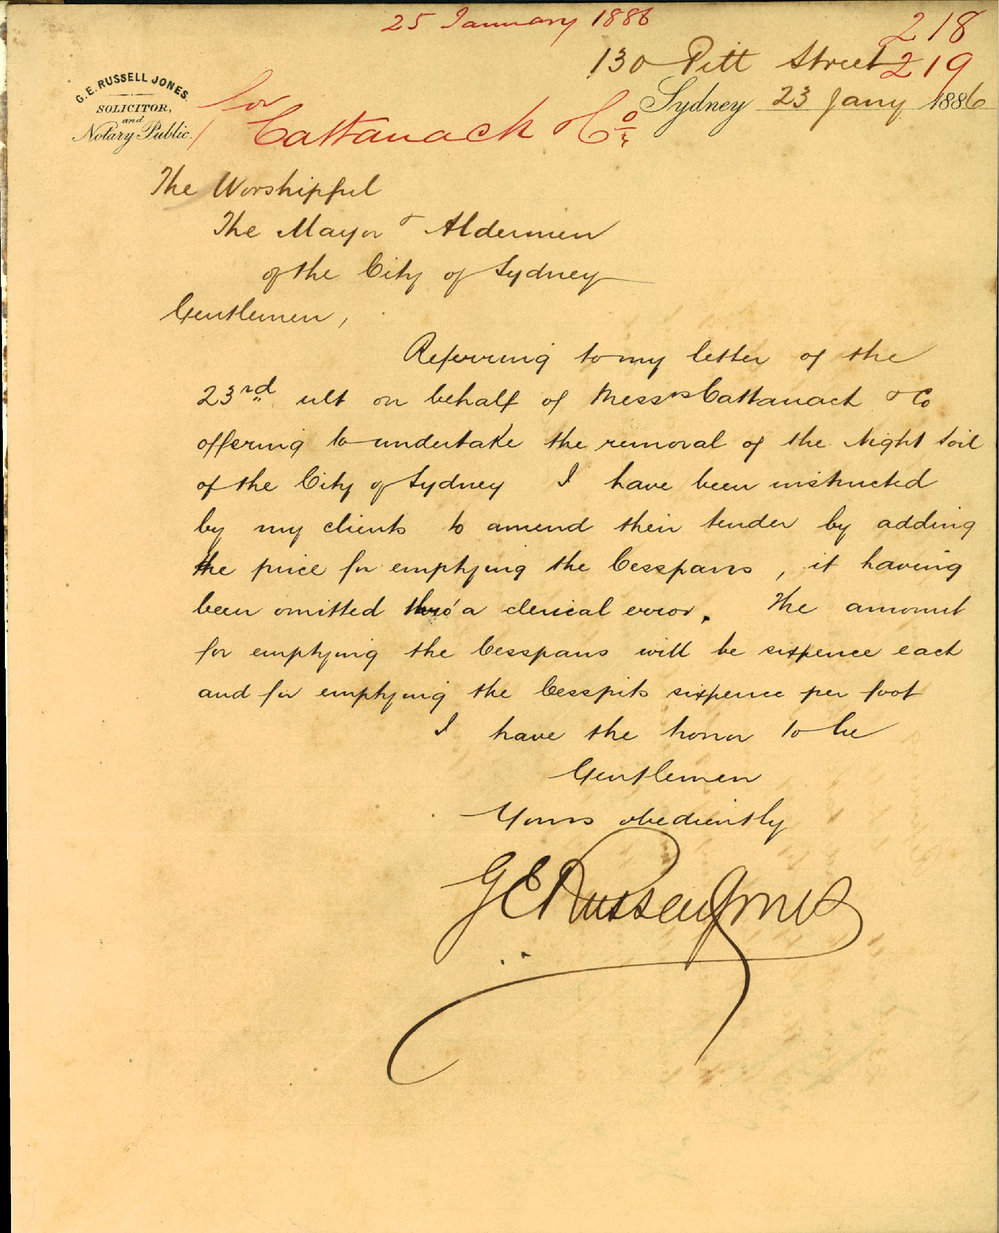 25 January 1886
218
130 Pitt Street 219
G. E. RUSSELL JONES.
SOLICITOR,
and
Notary Public.
Sydney 23 Jany 1886
for
Cattanach & Co.
The Worshipful
The Mayor & Aldermen
of the City of Sydney
Gentlemen,
Referring to my letter of the
23rd ult on behalf of Messrs Cattanach & Co
offering to undertake the removal of the Night Soil
of the City of Sydney I have been instructed
by my clients to amend their tender by adding
the price for emptying the Cesspans, it having
been omitted thro' a clerical error. The amount
for emptying the Cesspans will be sixpence each
and for emptying the Cesspits sixpence per foot
I have the honor to be
Gentlemen
Yours obediently
G E Russell Jones